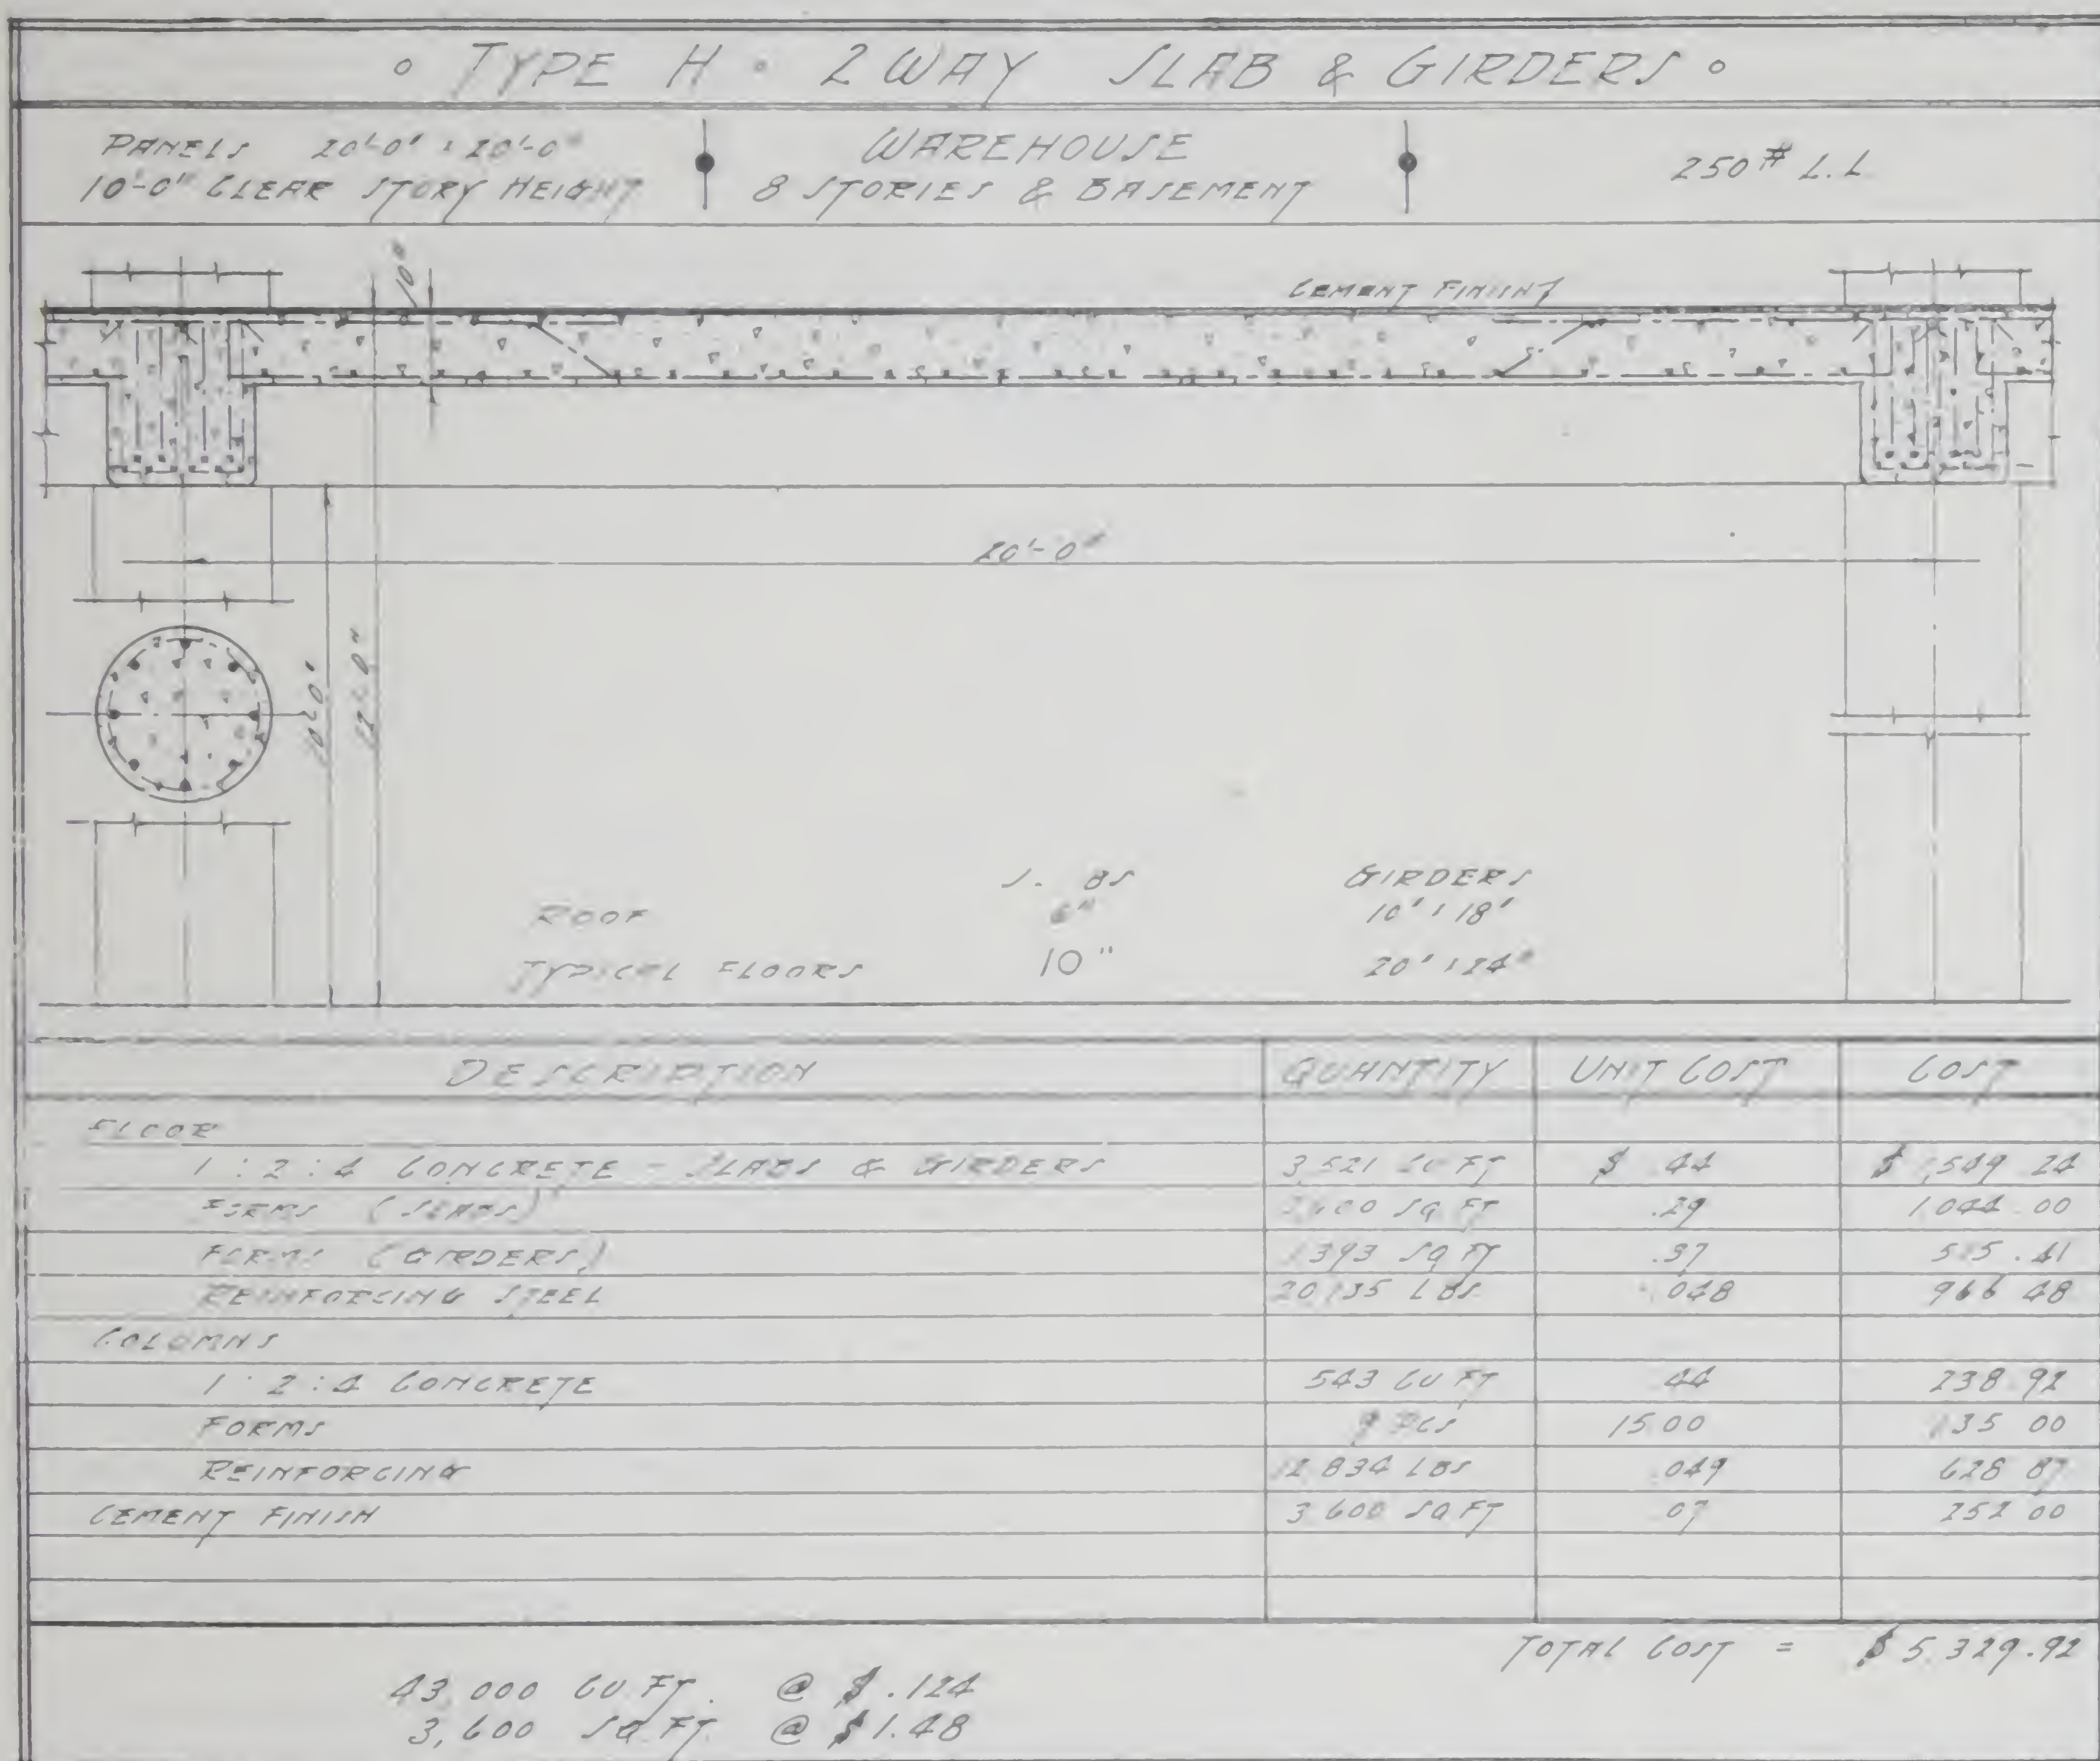 ° TYPE H ° 2 WAY SLAB & GIRDERS °
PANELS 20'-0" x 20'-0"
10'-0" CLEAR STORY HEIGHT
WAREHOUSE
8 STORIES & BASEMENT
250# L.L
10"
CEMENT FINISH
20'-0"
10'-0"
12'-0"
GIRDERS
ROOF 6" 10" x 18"
TYPICAL FLOORS 10" 20" x 24"
DESCRIPTION QUANTITY UNIT COST COST
FLOOR
1 : 2 : 4 CONCRETE - SLABS & GIRDERS 3,521 CU FT $ 44 $ 1,549 24
FORMS (SLABS) SQ FT .29 1044.00
FORMS (GIRDERS) 1393 SQ FT .37 515.41
REINFORCING STEEL 20 135 LBS .048 966 48
COLUMNS
1 : 2 : 4 CONCRETE 543 CU FT 44 238 92
FORMS 9 PCS 15 00 135 00
REINFORCING 12 834 LBS 049 628 87
CEMENT FINISH 3 600 SQ FT 07 252 00
TOTAL COST = $ 5 329.92
43,000 CU FT. @ $ .124
3,600 SQ FT. @ $1.48